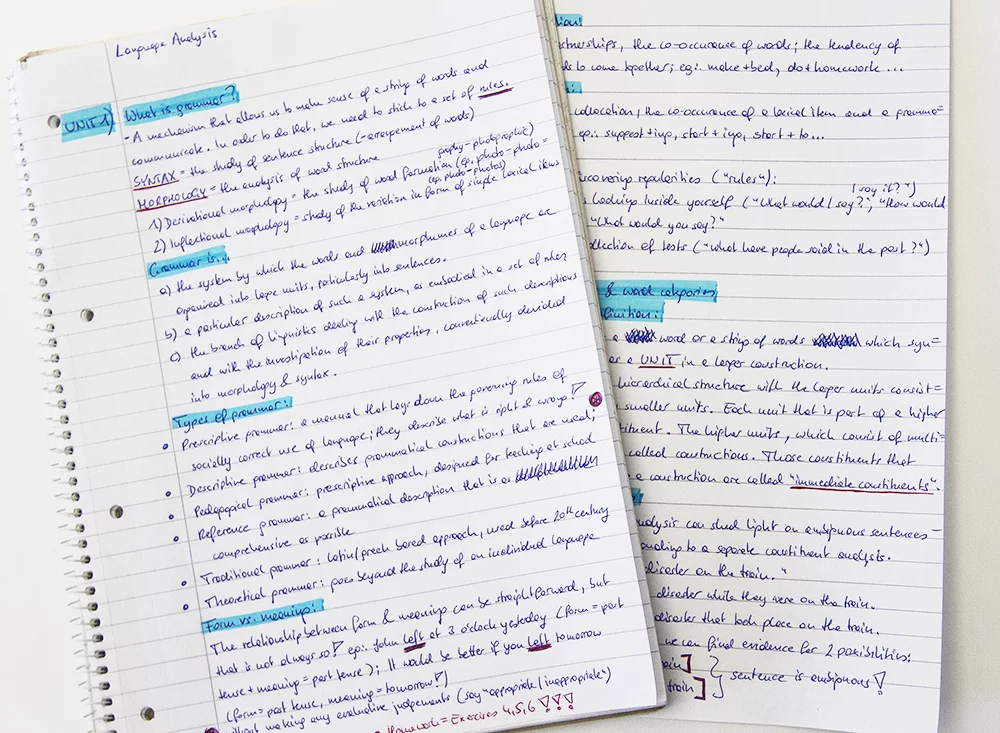 Language Analysis
UNIT 1) What is grammar?
- A mechanism that allows us to make sense of a string of words and
communicate. In order to do that, we need to stick to a set of rules.
SYNTAX = the study of sentence structure (- arrangement of words)
MORPHOLOGY = the analysis of word structure
graphy - photographic)
1) Derivational morphology = the study of word formation (eg. photo - photo =
(eg. photo - photos)
2) Inflectional morphology = study of the variation in form of single lexical items
Grammar is...
a) the system by which the words and morphemes of a language are
organized into large units, particularly into sentences.
b) a particular description of such a system, as embodied in a set of rules
c) the branch of linguistics dealing with the construction of such descriptions
and with the investigation of their properties, conventionally divided
into morphology & syntax.
Types of grammar:
Prescriptive grammar: a manual that lays down the governing rules of
socially correct use of language; they describe what is right & wrong!
Descriptive grammar: describes grammatical constructions that are used;
Pedagogical grammar: prescriptive approach, designed for teaching at school
Reference grammar: a grammatical description that is as
comprehensive as possible
Traditional grammar: latin/greek based approach, used before 20th century
Theoretical grammar: goes beyond the study of an individual language
Form vs. meaning:
The relationship between form & meaning can be straightforward, but
that is not always so! eg: John left at 3 o'clock yesterday (form = past
tense + meaning = past tense); It would be better if you left tomorrow
(form = past tense, meaning = tomorrow!)
without making any evaluative judgements (say "appropriate / inappropriate")
Homework = Exercises 4,5,6 !!!
tion:
tnerships, the co-occurance of words; the tendency of
ds to come together; eg: make + bed, do + homework ...
collocation, the co-occurance of a lexical item and a gramma=
eg: suggest + ing, start + ing, start + to...
scovering regularities ("rules"):
I say it?")
s Looking inside yourself ("What would I say?", "How would
"What would you say?"
ollection of texts ("What have people said in the past?")
& word categories
finition:
a word or a string of words which syn=
as a UNIT in a larger construction.
hierarchical structure with the larger units consist=
smaller units. Each unit that is part of a higher
tituent. The higher units, which consist of multi=
called constructions. Those constituents that
e a construction are called "immediate constituents".
nalysis can shed light on ambiguous sentences -
onding to a separate constituent analysis.
disaster on the train."
disaster while they were on the train.
disaster that took place on the train.
we can find evidence for 2 possibilities:
ain]
train] } sentence is ambiguous!